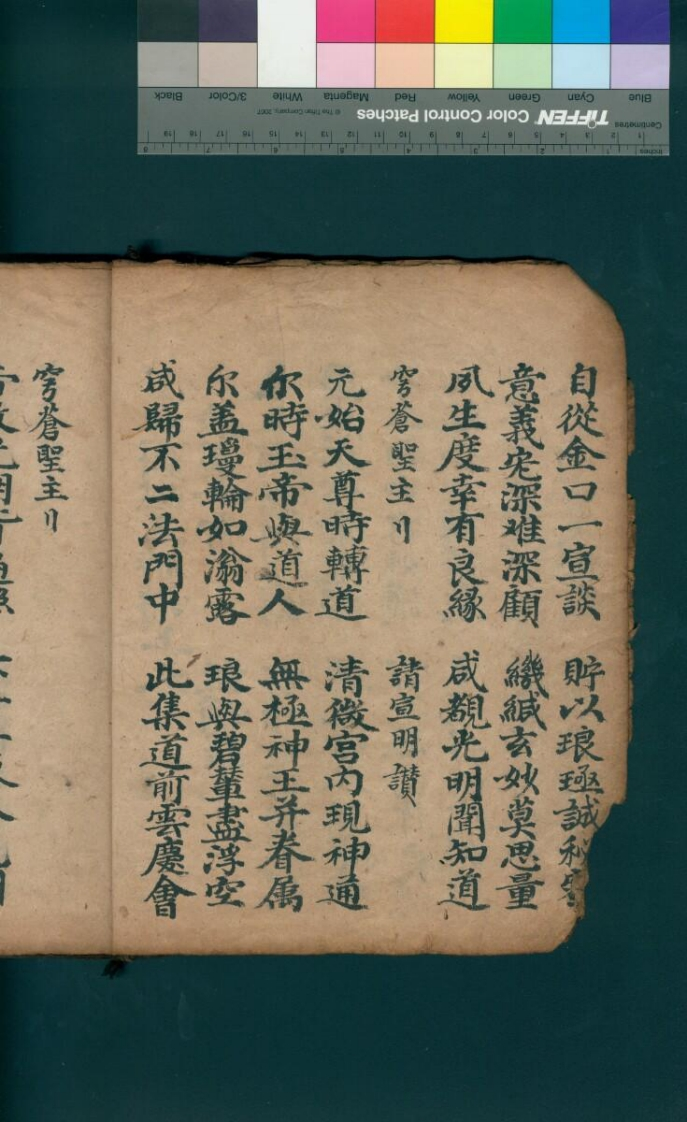 Blue Cyan Green Yellow Red Magenta White 3/Color Black
TIFFEN Color Control Patches
© The Tiffen Company, 2007
Centimetres
Inches
自從金口一宣談 貯以琅極誠秘
意義宛深难深顧 緘緘玄妙莫思量
夙生度幸有良縁 咸覩光明聞知道
穹蒼聖主〢 請宣明讚
元始天尊時轉道 清微宮内現神通
尔時玉帝與道人 無極神王并眷属
尔盖瓊輪如滃露 琅與碧輦盡浮空
咸歸不二法門中 此集道前雲慶會
穹蒼聖主〢